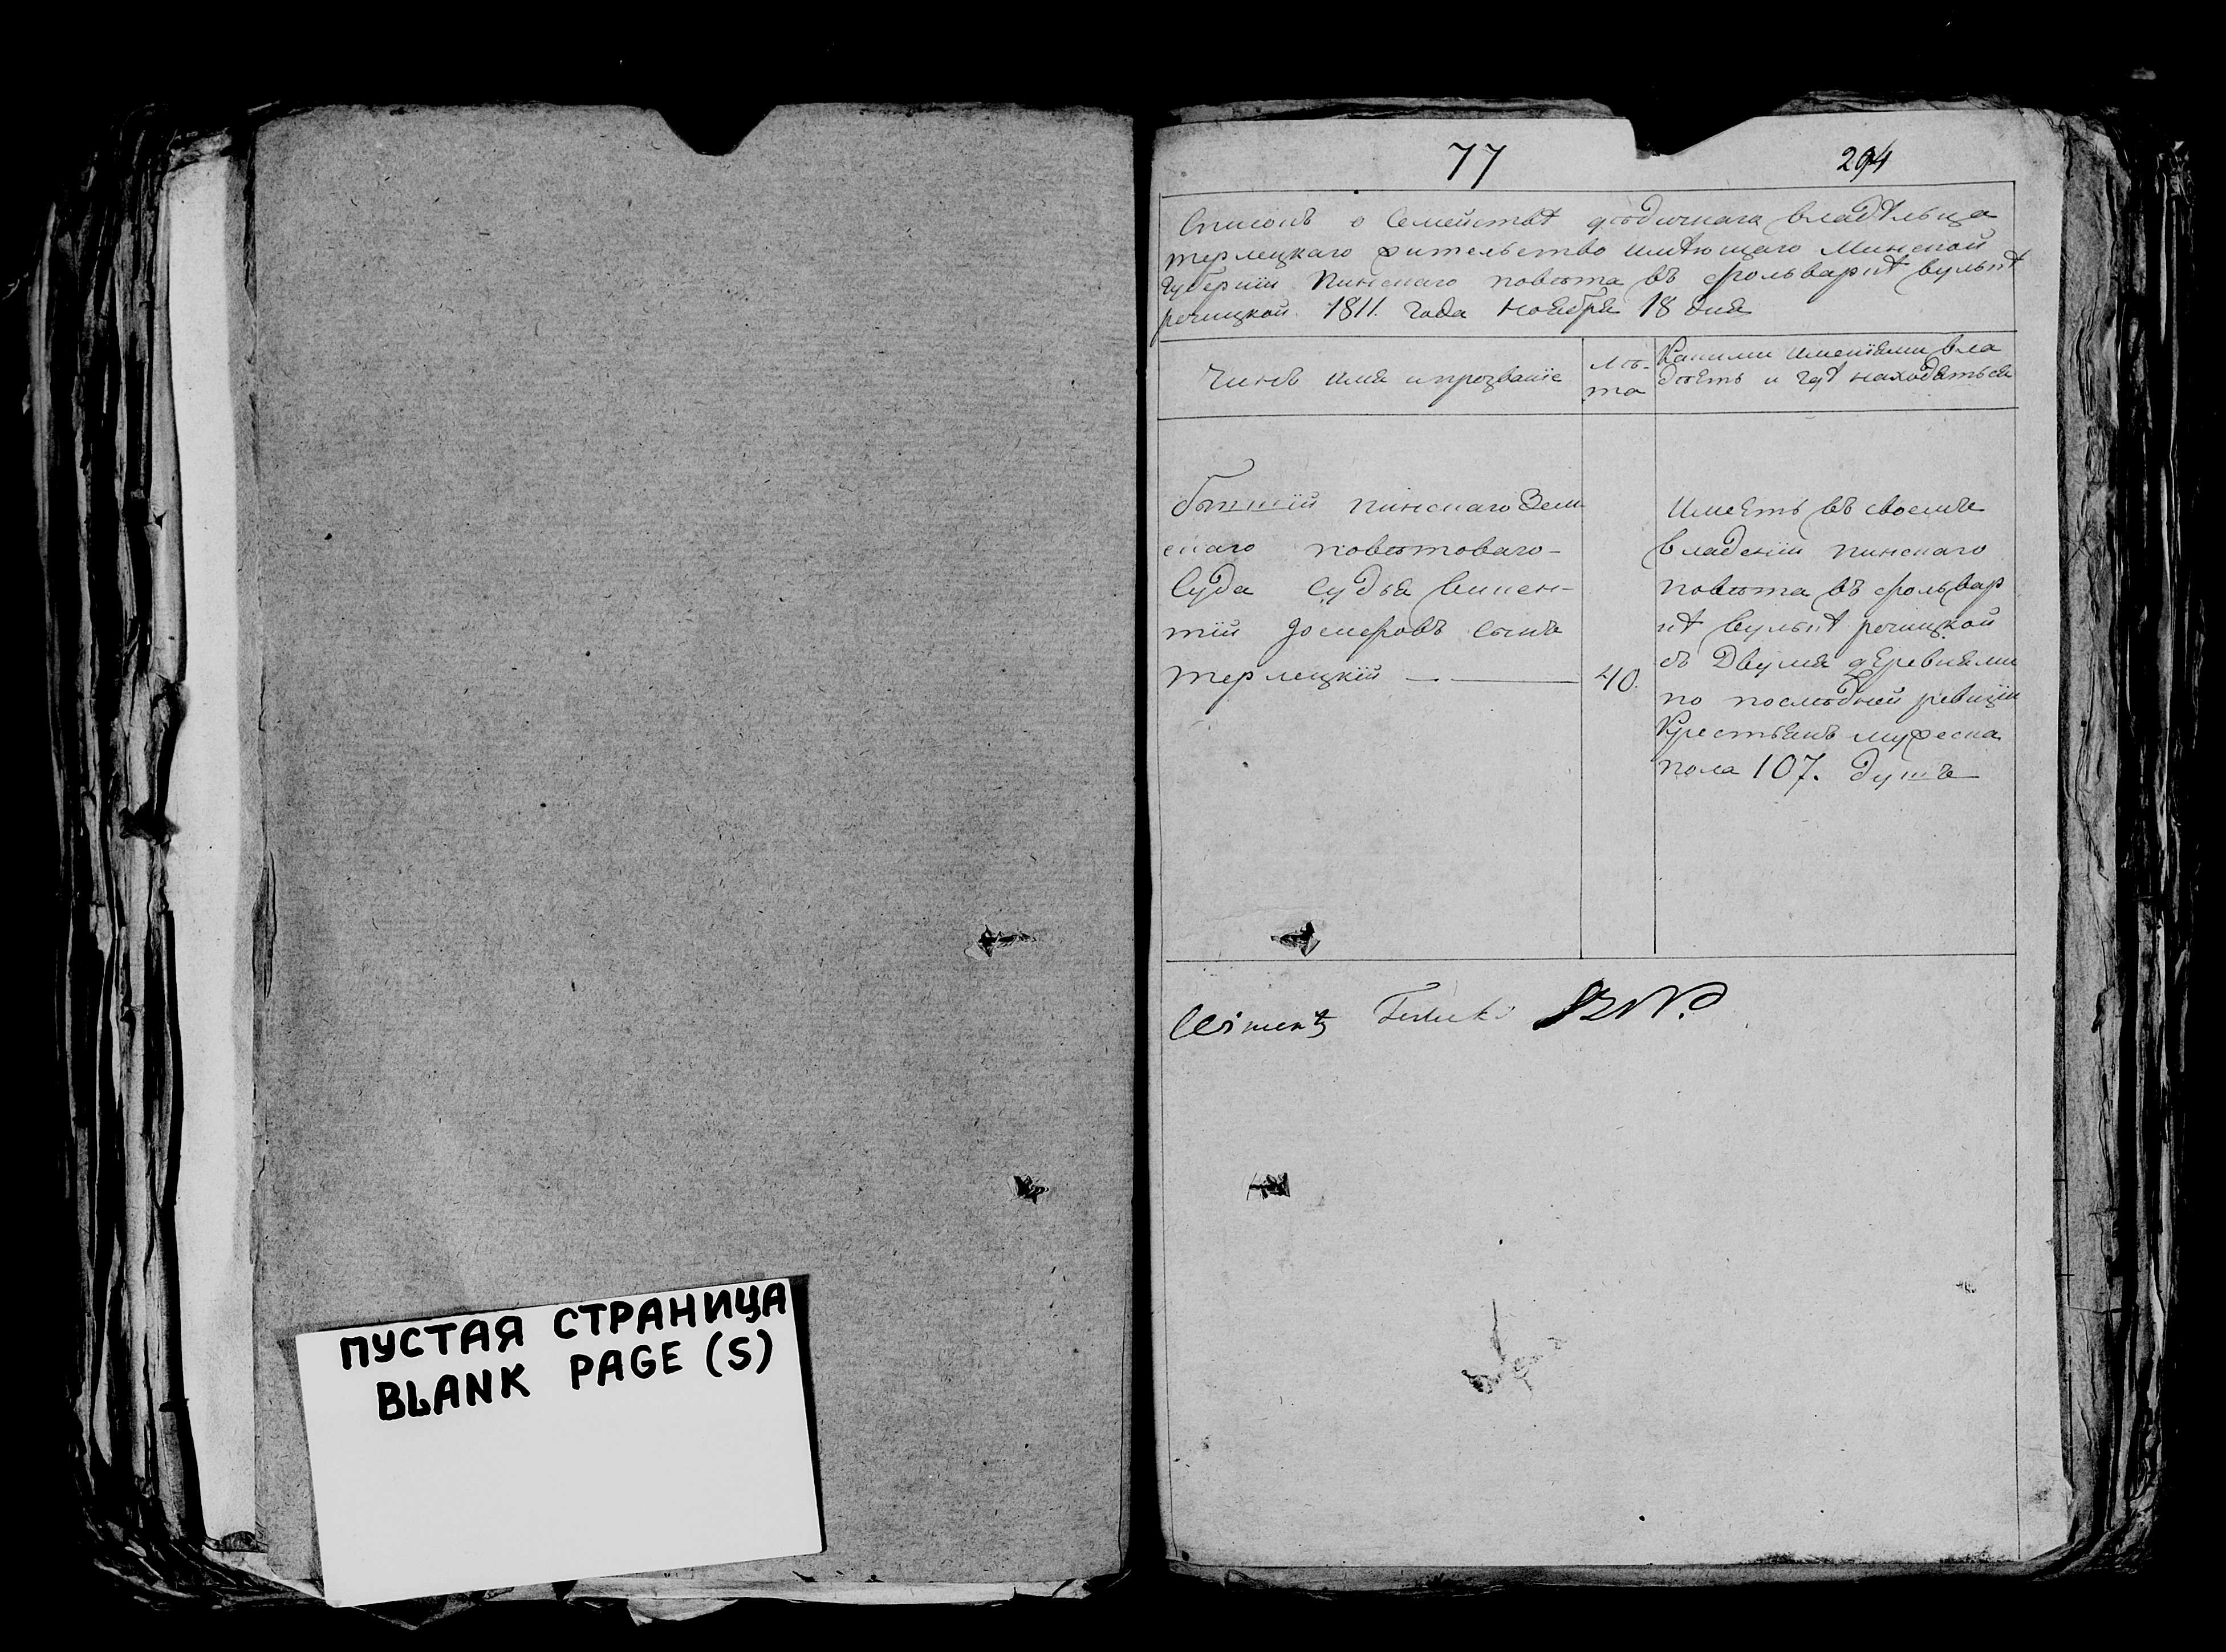 77
294
Списокъ о Семействѣ дѣдичнага владѣльца
терлецкаго жительство имѣющаго Минской
Губерніи Пинскаго повѣта въ фольваркѣ вулькѣ
речицкой 1811. года Ноября 18 дня
Чинъ имя и прозваніе
Лѣ-
та
Какими именіями вла
дѣетъ и гдѣ находяться
бывшій пинскаго Зем
скаго повѣтоваго-
Суда Судья викен-
тій Іосифовъ сынъ
терлецкій — ———
40.
имеетъ въ своемъ
владеніи пинскаго
повѣта въ фольвар
кѣ вулькѣ речицкой
съ двумя деревнями
по послѣдней ревизіи
Крестьянъ мужеска
пола 107. душъ
ПУСТАЯ СТРАНИЦА
BLANK PAGE (S)